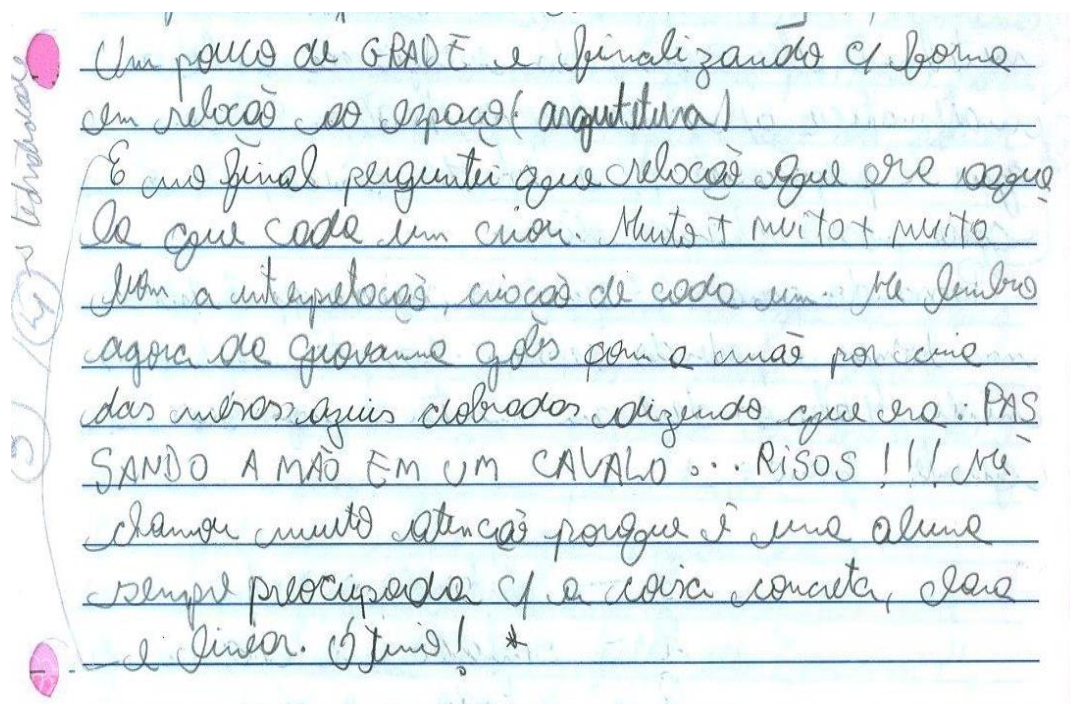 Um pouco de GRADE e finalizando c/ forma
em relação ao espaço (arquitetura)
E no final perguntei que relação que era aque
la que cada um criou. Muito + muito + muito
bom a interpretação, criação de cada um. Me lembro
agora da Giovanna góes com a mão por cima
das mesas azuis dobradas dizendo que era: PAS
SANDO A MÃO EM UM CAVALO... RISOS!!! Me
chamou muito atenção porque é uma aluna
sempre preocupada c/ a coisa concreta, clara
e linear. Ótimo! *